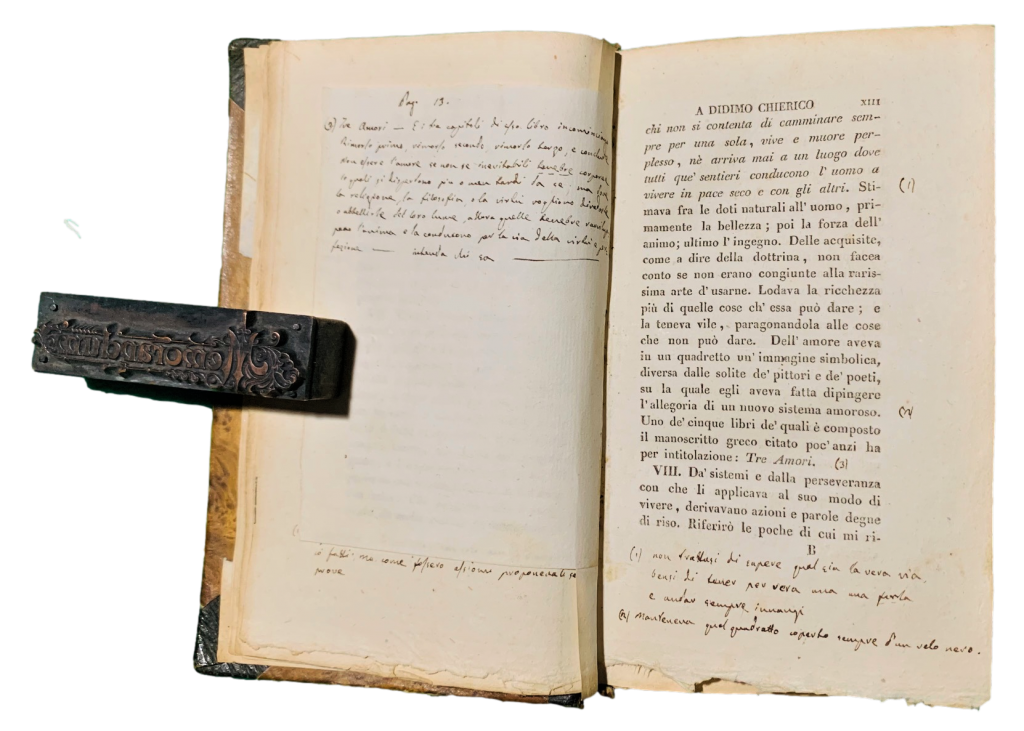 Pag. 13.
(3) Tre Amori — E i tre capitoli di esso libro incominciano
Rimorso primo, rimorso secondo, rimorso terzo, e conclude
non essere l'amore se non se inevitabili tenebre corporee
le quali si disperdono più o men tardi da se; ma
la religione, la filosofia o la virtù vogliono
del loro lume, allora quelle tenebre
l'anima e la conducono per la via della virtù a
— intenda chi sa —
i fatti: ma come fossero assiomi proponevali senza
prove
A DIDIMO CHIERICO XIII
chi non si contenta di camminare sem-
pre per una sola, vive e muore per-
plesso, nè arriva mai a un luogo dove
tutti que' sentieri conducono l'uomo a
vivere in pace seco e con gli altri. Sti- (1)
mava fra le doti naturali all'uomo, pri-
mamente la bellezza; poi la forza dell'
animo; ultimo l'ingegno. Delle acquisite,
come a dire della dottrina, non facea
conto se non erano congiunte alla raris-
sima arte d'usarne. Lodava la ricchezza
più di quelle cose ch'essa può dare; e
la teneva vile, paragonandola alle cose
che non può dare. Dell'amore aveva
in un quadretto un'immagine simbolica,
diversa dalle solite de' pittori e de' poeti,
su la quale egli aveva fatta dipingere
l'allegoria di un nuovo sistema amoroso. (2)
Uno de' cinque libri de' quali è composto
il manoscritto greco citato poc'anzi ha
per intitolazione: Tre Amori. (3)
VIII. Da' sistemi e dalla perseveranza
con che li applicava al suo modo di
vivere, derivavano azioni e parole degne
di riso. Riferirò le poche di cui mi ri-
B
(1) non trattasi di sapere qual sia la vera via,
bensì di tener per vera una via
e andar sempre innanzi
(2) Manteneva quel quadretto coperto sempre d'un velo nero.